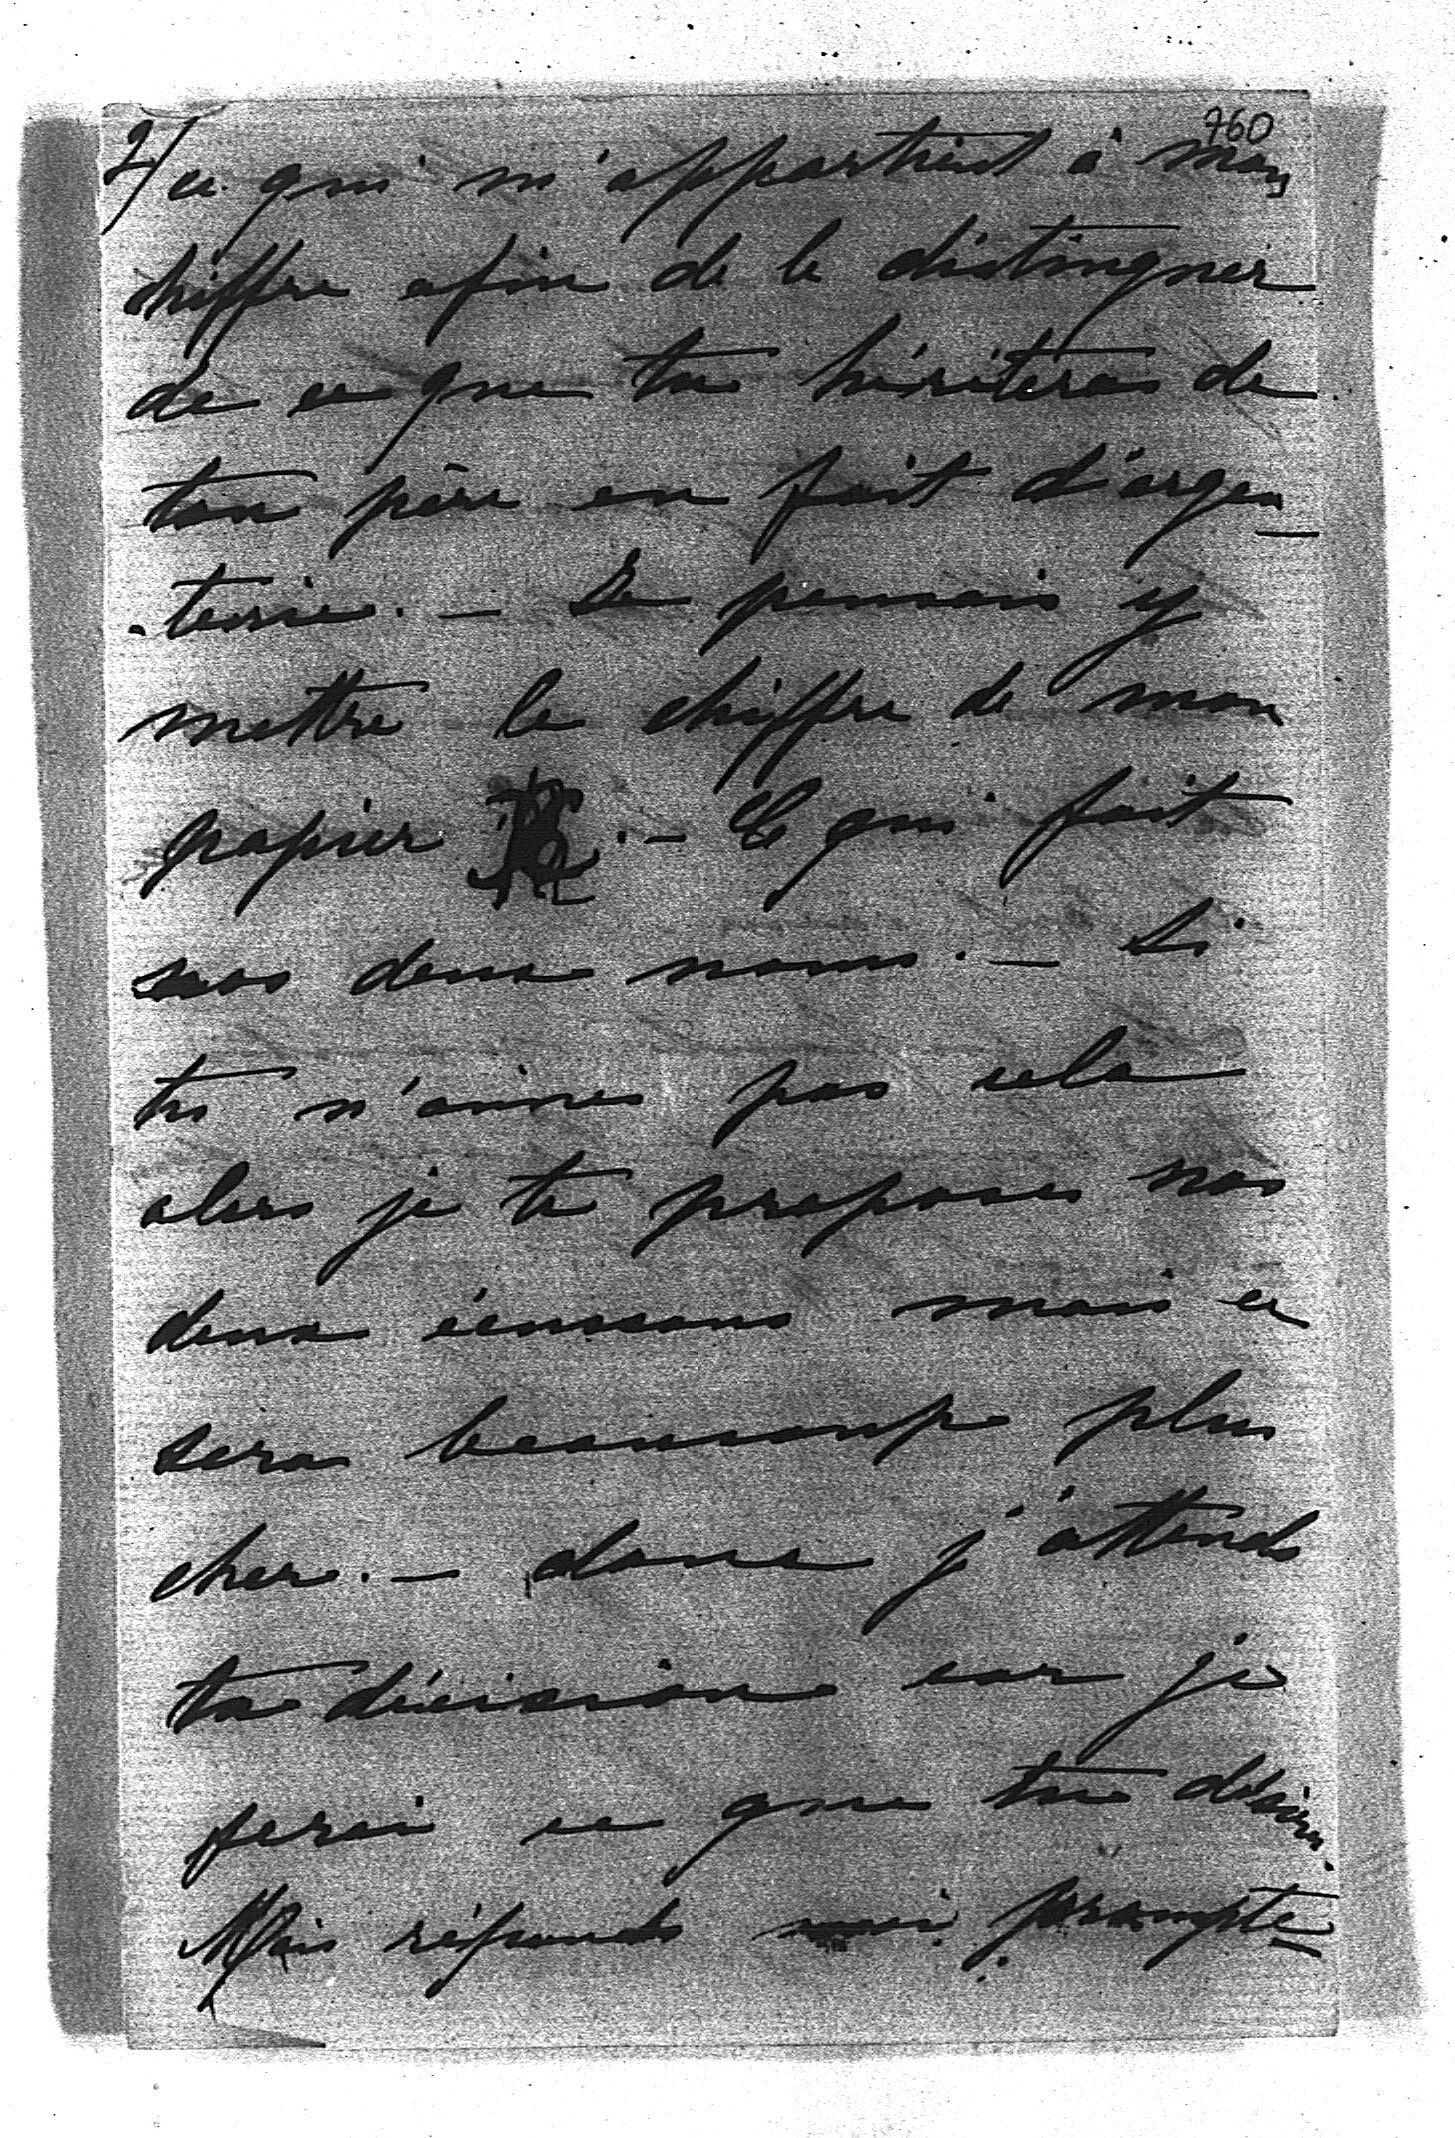 760
2/ ce qui m'appartient à mon
chiffre afin de le distinguer
de ce que tu hériteras de
ton père en fait d'argen-
-terie. — Je pensais y
mettre le chiffre de mon
papier . — Ce qui fait
nos deux noms. — Si
tu n'aimes pas cela
alors je te propose nos
deux écussons mais ce
sera beaucoup plus
cher. — donc j'attends
ta décision car je
ferai ce que tu désires.
Mais réponds moi prompte-